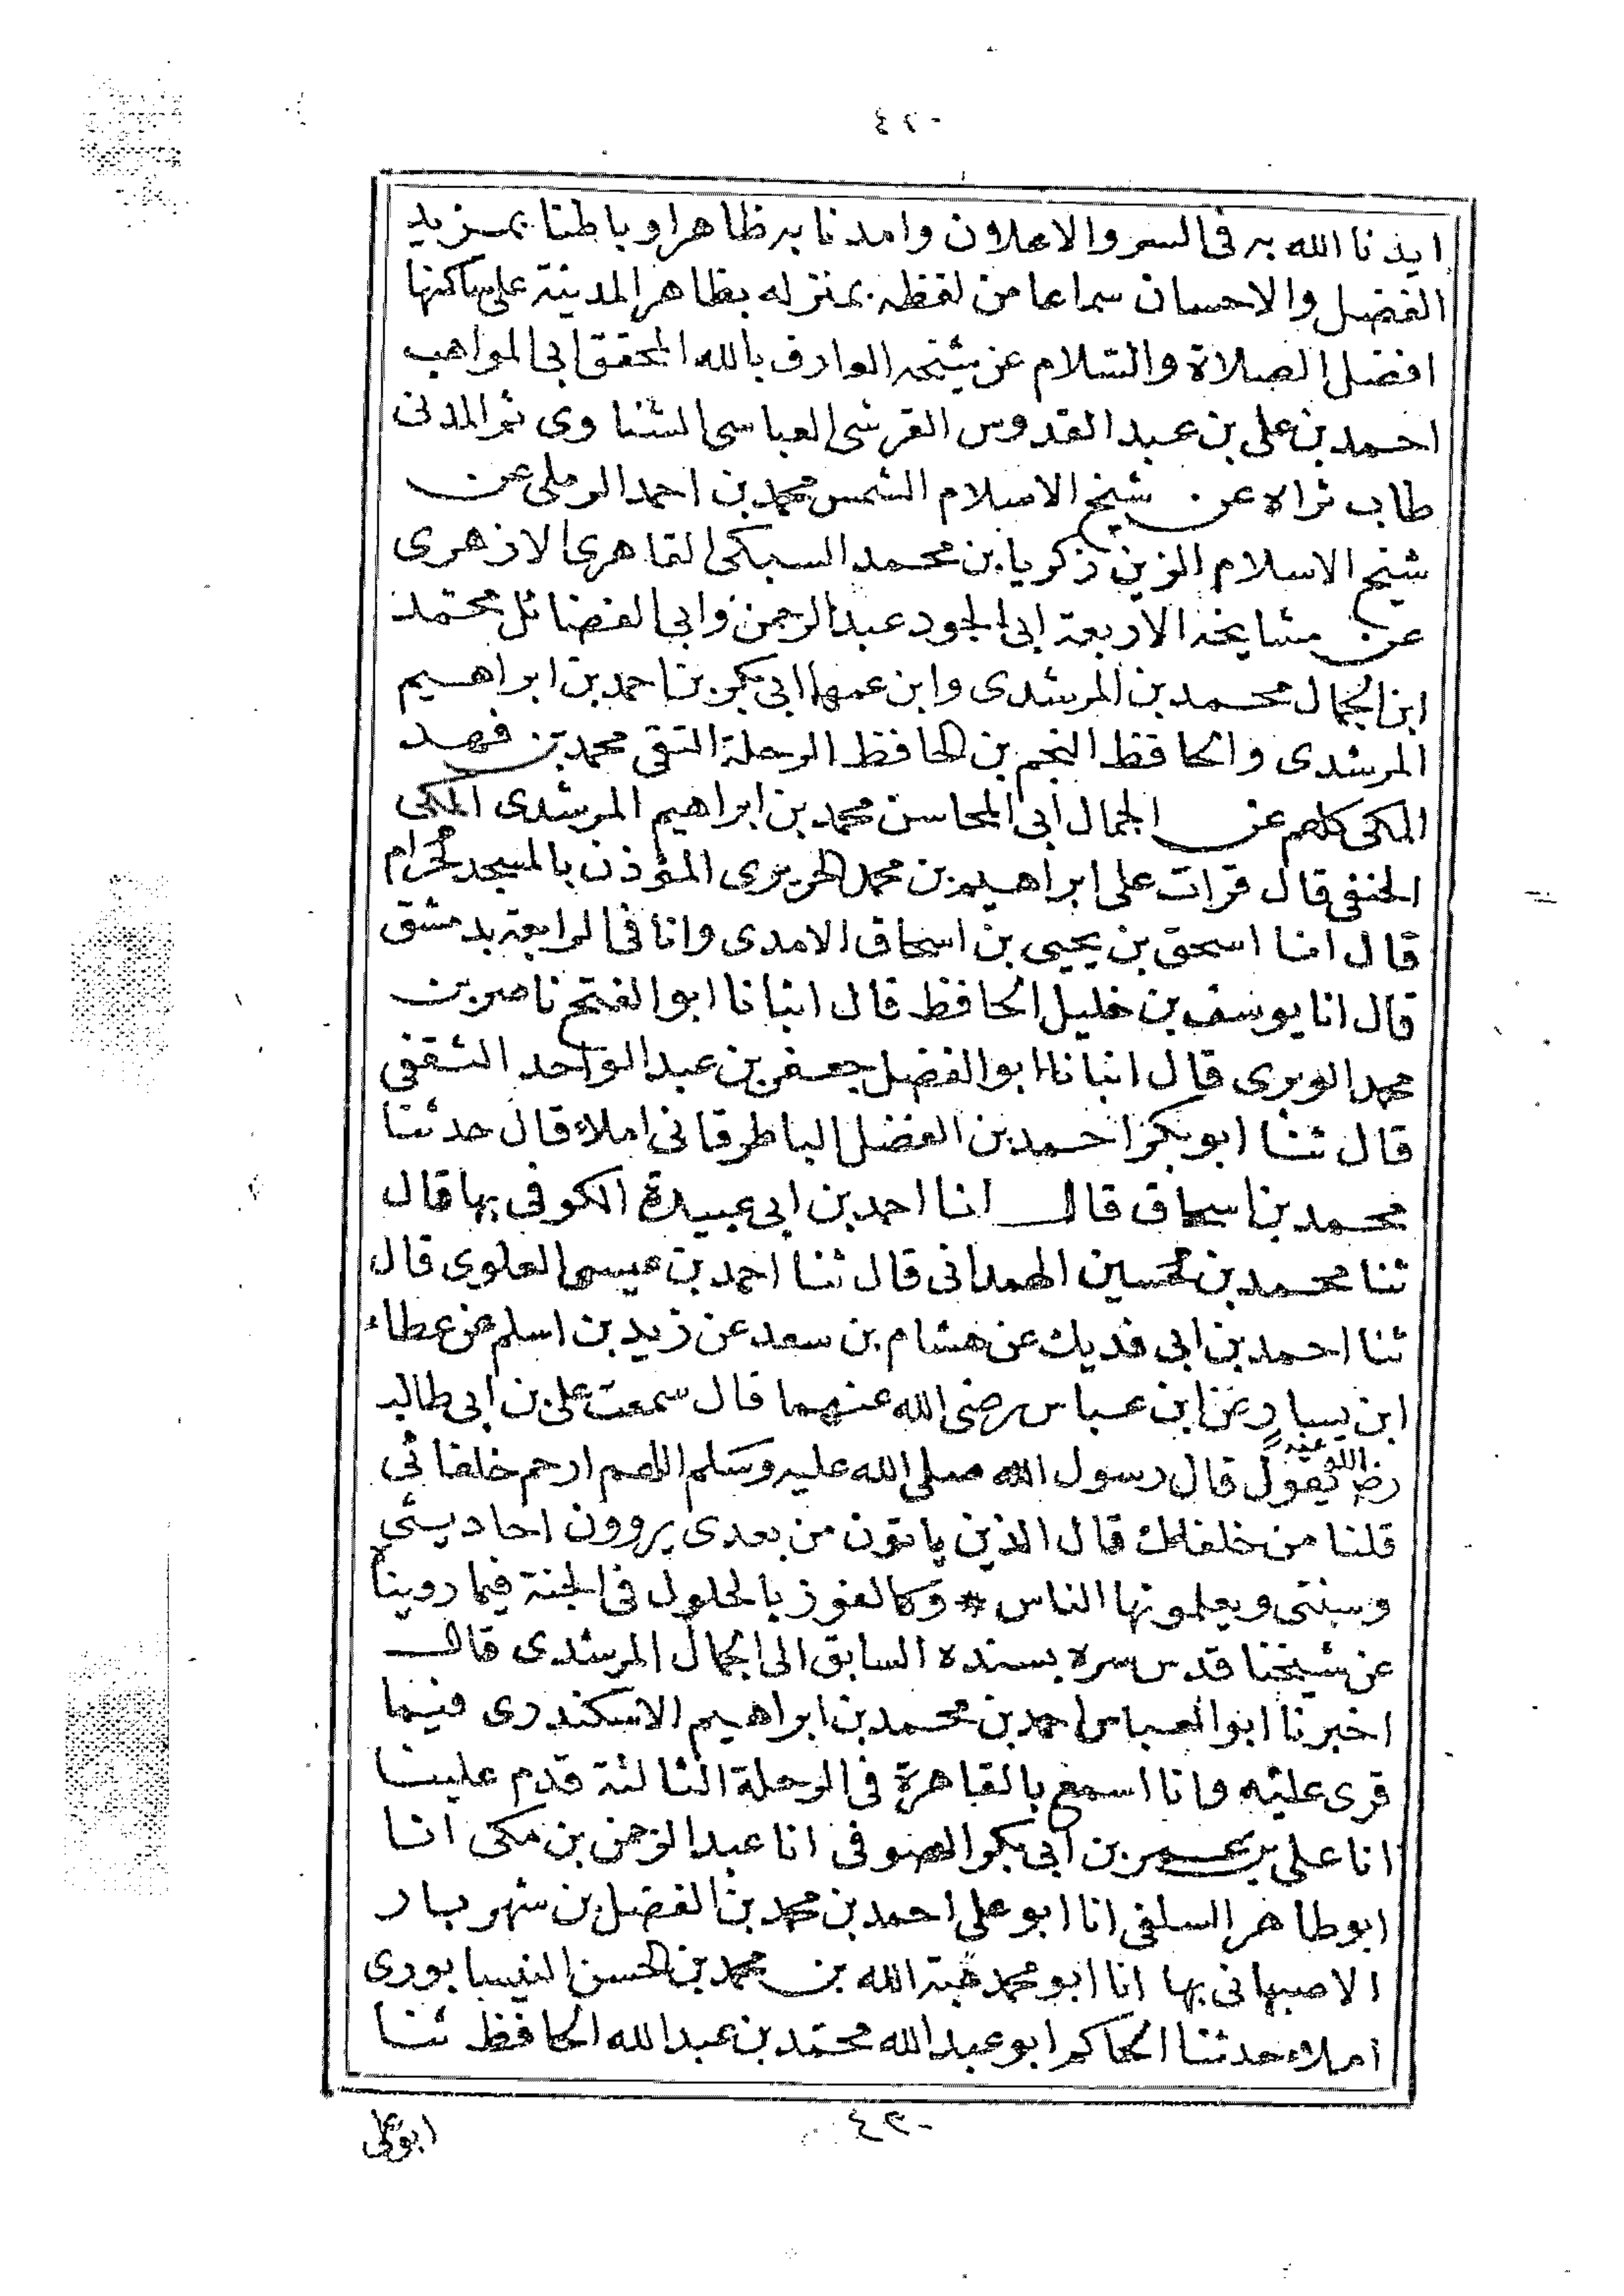 ٤٢٠
ايدنا الله به في السر والاعلان وامدنا به ظاهرا وباطنا بمزيد
الفضل والاحسان سماعا من لفظه بمنزله بظاهر المدينة على ساكنها
افضل الصلاة والسلام عن شيخه العارف بالله المحقق ابي المواهب
احمد بن علي بن عبد القدوس القرشي العباسي الشناوي ثم المدني
طاب ثراه عن شيخ الاسلام الشمس محمد بن احمد الرملي عن
شيخ الاسلام الزين زكريا بن محمد السبكي القاهري الازهري
عن مشايخه الاربعة ابي الجود عبد الرحمن وابي الفضائل محمد
ابن الجمال محمد بن المرشدي وابن عمهما ابي بكر بن احمد بن ابراهيم
المرشدي والحافظ النجم بن الحافظ الرحلة التقي محمد بن فهد
المكي كلهم عن الجمال ابي المحاسن محمد بن ابراهيم المرشدي المكي
الحنفي قال قرات على ابراهيم بن محمد الحريري المؤذن بالمسجد الحرام
قال انا اسحق بن يحيى بن اسحاق الامدي وانا في الرابعة بدمشق
قال انا يوسف بن خليل الحافظ قال انبانا ابو الفتح ناصر بن
محمد الويري قال انبانا ابو الفضل جعفر بن عبد الواحد الثقفي
قال ثنا ابو بكر احمد بن الفضل الباطرقاني املاء قال حدثنا
محمد بن اسحاق قال انا احمد بن ابي عبيدة الكوفي بها قال
ثنا محمد بن الحسين الهمداني قال ثنا احمد بن عيسى العلوي قال
ثنا احمد بن ابي فديك عن هشام بن سعد عن زيد بن اسلم عن عطاء
ابن يسار عن ابن عباس رضي الله عنهما قال سمعت علي بن ابي طالب
رضي الله عنه يقول قال رسول الله صلى الله عليه وسلم اللهم ارحم خلفائي
قلنا من خلفائك قال الذين ياتون من بعدي يروون احاديثي
وسنتي ويعلمونها الناس # وكالفوز بالحلول في الجنة فيما روينا
عن شيخنا قدس سره بسنده السابق الى الجمال المرشدي قال
اخبرنا ابو العباس احمد بن محمد بن ابراهيم الاسكندري فيما
قرى عليه وانا اسمع بالقاهرة في الرحلة الثالثة قدم علينا
انا علي بن عمر بن ابي بكر الصوفي انا عبد الرحمن بن مكي انا
ابو طاهر السلفي انا ابو علي احمد بن محمد بن الفضل بن شهريار
الاصبهاني بها انا ابو محمد هبة الله بن محمد بن الحسن النيسابوري
املاء حدثنا الحاكم ابو عبد الله محمد بن عبد الله الحافظ ثنا
٤٢٠
ابو علي